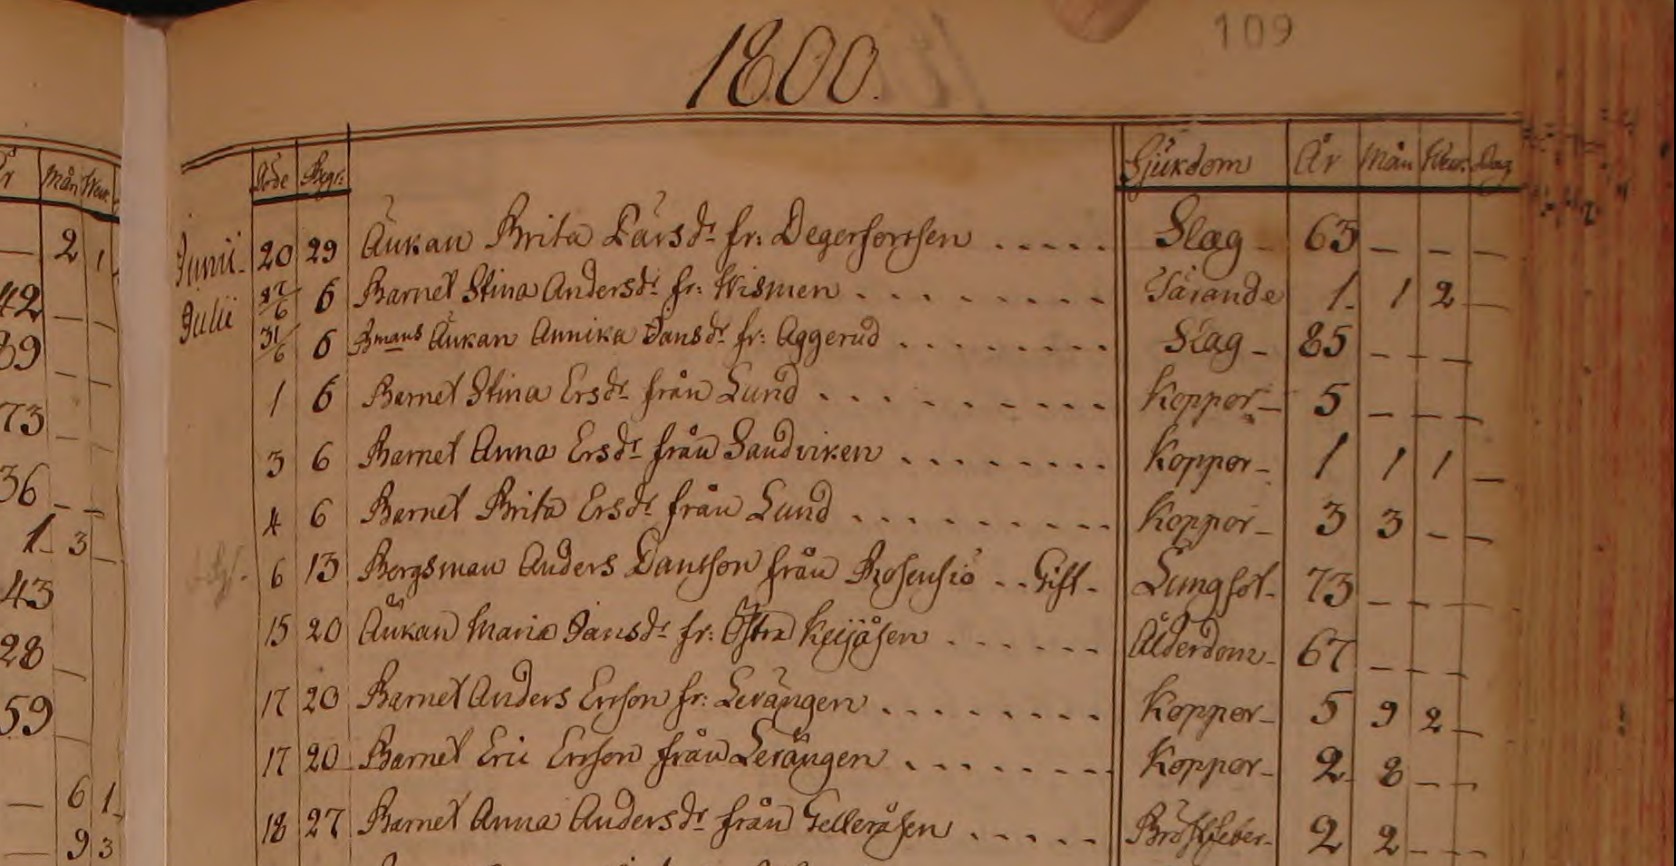 109
1800.
År Mån Wek. Döde Begr: Sjukdom År Mån Wek. Dag
— 2 1 Junii 20 29 Änkan Brita Larsdr fr: Degerforssen ..... Slag 63 — — —
42 — — Julii 27/6 6 Barnet Stina Andersdr fr: Wismen ........ Tärande 1 1 2 —
39 — — 31/6 6 Bmans Änkan Annika Jansdr fr: Aggerud ........ Slag 85 — — —
73 — — 1 6 Barnet Stina Ersdr från Lund ......... Koppor 5 — — —
36 — — 3 6 Barnet Anna Ersdr från Sandviken ....... Koppor 1 1 1 —
1 3 — 4 6 Barnet Brita Ersdr från Lund ........ Koppor 3 3 — —
43 6 13 Bergsman Anders Danson från Rosensiö .. Gift Lungsot 73 — — —
28 — 15 20 Änkan Maria Jansdr fr: Östra Keijåsen ...... Ålderdom 67 — — —
59 — 17 20 Barnet Anders Ersson fr: Lerängen ....... Koppor 5 9 2 —
17 20 Barnet Eric Ersson från Lerängen ....... Koppor 2 8 — —
— 6 1 18 27 Barnet Anna Andersdr från Gelleråsen ..... Bröstfeber 2 2 — —
— 9 3